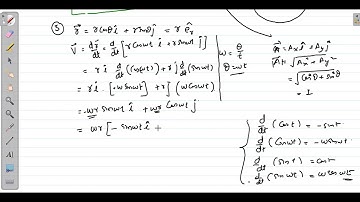 ③ r⃗ = r cosθ î + r sinθ ĵ = r ê_r
V⃗ = dr⃗/dt = d/dt [r cosωt î + r sinωt ĵ]
= r î d/dt (cosωt) + r ĵ d/dt (sinωt)
= r î [-ω sinωt] + r ĵ (ω cosωt)
= -ωr sinωt î + ωr cosωt ĵ
= ωr [- sinωt î +
ω = θ/t
θ = ωt
A⃗ = Ax î + Ay ĵ
|A⃗| = √(Ax² + Ay²)
= √(cos²θ + sin²θ)
= 1
d/dt (cos t) = - sin t
d/dt (cos ωt) = - ω sin ωt
d/dt (sin t) = cos t
d/dt (sin ωt) = ω cos ωt